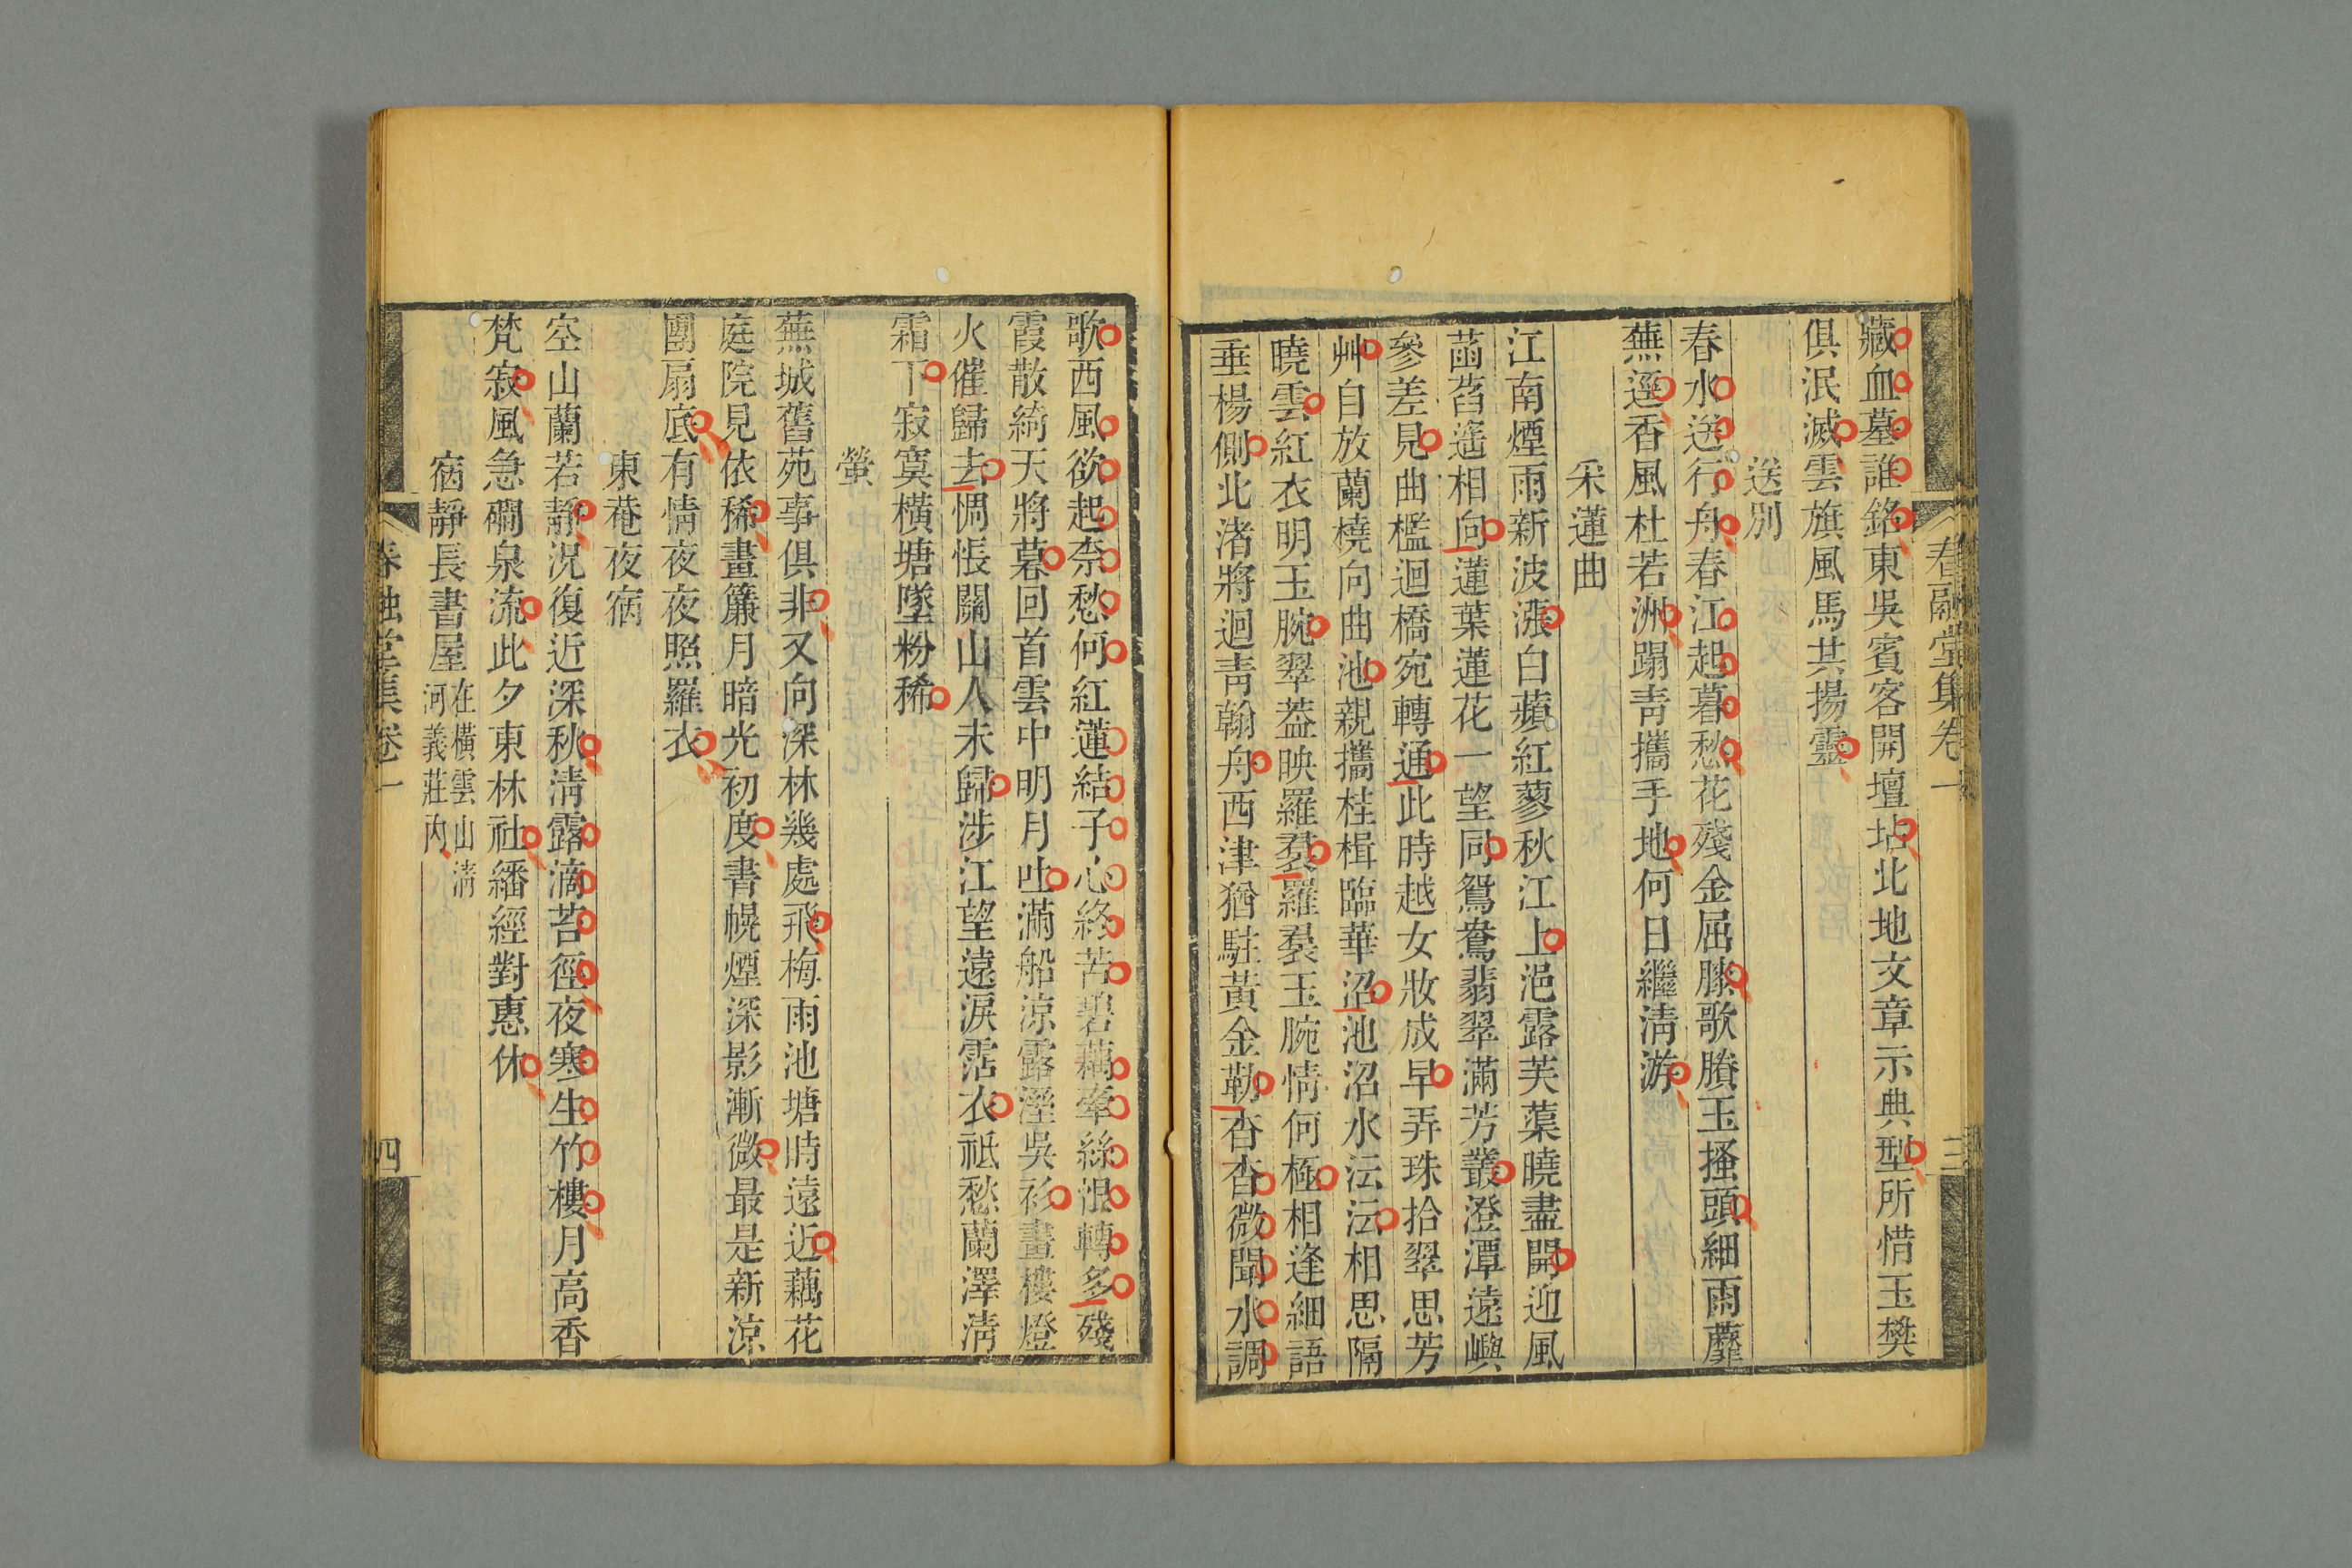 春融堂集卷一
三
藏血墓誰銘東吳賓客開壇坫北地文章示典型所惜玉樊
俱泯滅雲旗風馬共揚靈
送別
春水送行舟春江起暮愁花殘金屈膝歌賸玉搔頭細雨蘼
蕪逕香風杜若洲蹋青攜手地何日繼清游
采蓮曲
江南煙雨新波漲白蘋紅蓼秋江上浥露芙蕖曉盡開迎風
菡萏遙相向蓮葉蓮花一望同鴛鴦翡翠滿芳叢澄潭遠嶼
參差見曲檻迴橋宛轉通此時越女妝成早弄珠拾翠思芳
艸自放蘭橈向曲池親攜桂楫臨華沼池沼水沄沄相思隔
曉雲紅衣明玉腕翠葢映羅裠羅裠玉腕情何極相逢細語
垂楊側北渚將迴靑翰舟西津猶駐黃金勒杳杳微聞水調
歌西風欲起柰愁何紅蓮結子心終苦碧藕牽絲恨轉多殘
霞散綺天將暮回首雲中明月吐滿船涼露溼吳衫畫樓燈
火催歸去惆悵關山人未歸涉江望遠淚霑衣祗愁蘭澤淸
霜下寂寞橫塘墜粉稀
螢
蕪城舊苑事俱非又向深林幾處飛梅雨池塘時遠近藕花
庭院見依稀畫簾月暗光初度書幌煙深影漸微最是新涼
團扇底有情夜夜照羅衣
東菴夜宿
空山蘭若靜況復近深秋淸露滴苔徑夜寒生竹樓月高香
梵寂風急磵泉流此夕東林社繙經對惠休
宿靜長書屋 在橫雲山淸
河義莊內
春融堂集卷一
四